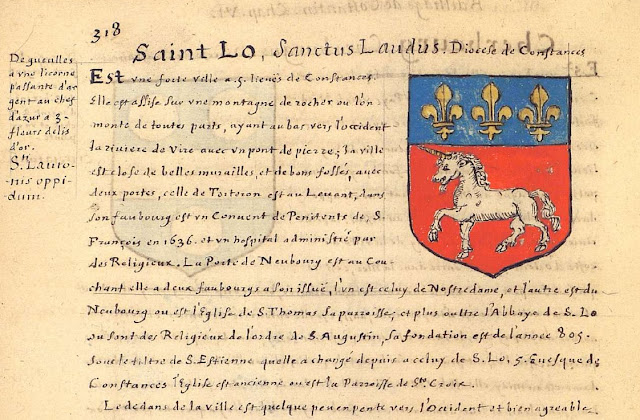 318
Saint Lo, Sanctus Laudus, Diocese de Constances
De gueulles
a vne licorne
passante d'ar
gent au chef
d'azur a 3.
fleurs de lis
d'or.
oppi
dum.
Est vne forte ville a 5. lieuës de Constances.
Elle est assise sur une montagne de rocher ou l'on
monte de toutes parts, ayant au bas vers l'occident
la riviere de Vire avec un pont de pierre; la ville
est close de belles murailles, et de bons fossés, avec
deux portes, celle de Torteron est au Levant, dans
son faubourg est vn Convent de Penitents de S.
François en 1636. et vn hospital administré par
des Religieux. La Porte de Neubourg est au Cou-
chant elle a deux faubourgs a son issuë, l'un est celuy de Nostre dame, et l'autre est du
Neubourg ou est l'Eglise de S. Thomas sa parroisse, et plus outtre l'Abbaye de S. Lo
ou sont des Religieux de l'ordre de S. Augustin, sa fondation est de l'année 805.
sous le tiltre de S. Estienne quelle a changé depuis a celuy de S. Lo, 5. Euesque de
Constances l'Eglise est ancienne ou est la Parroisse de Ste Croix.
Le dedans de la ville est quelque peu en pente vers l'Occident et bien agreable